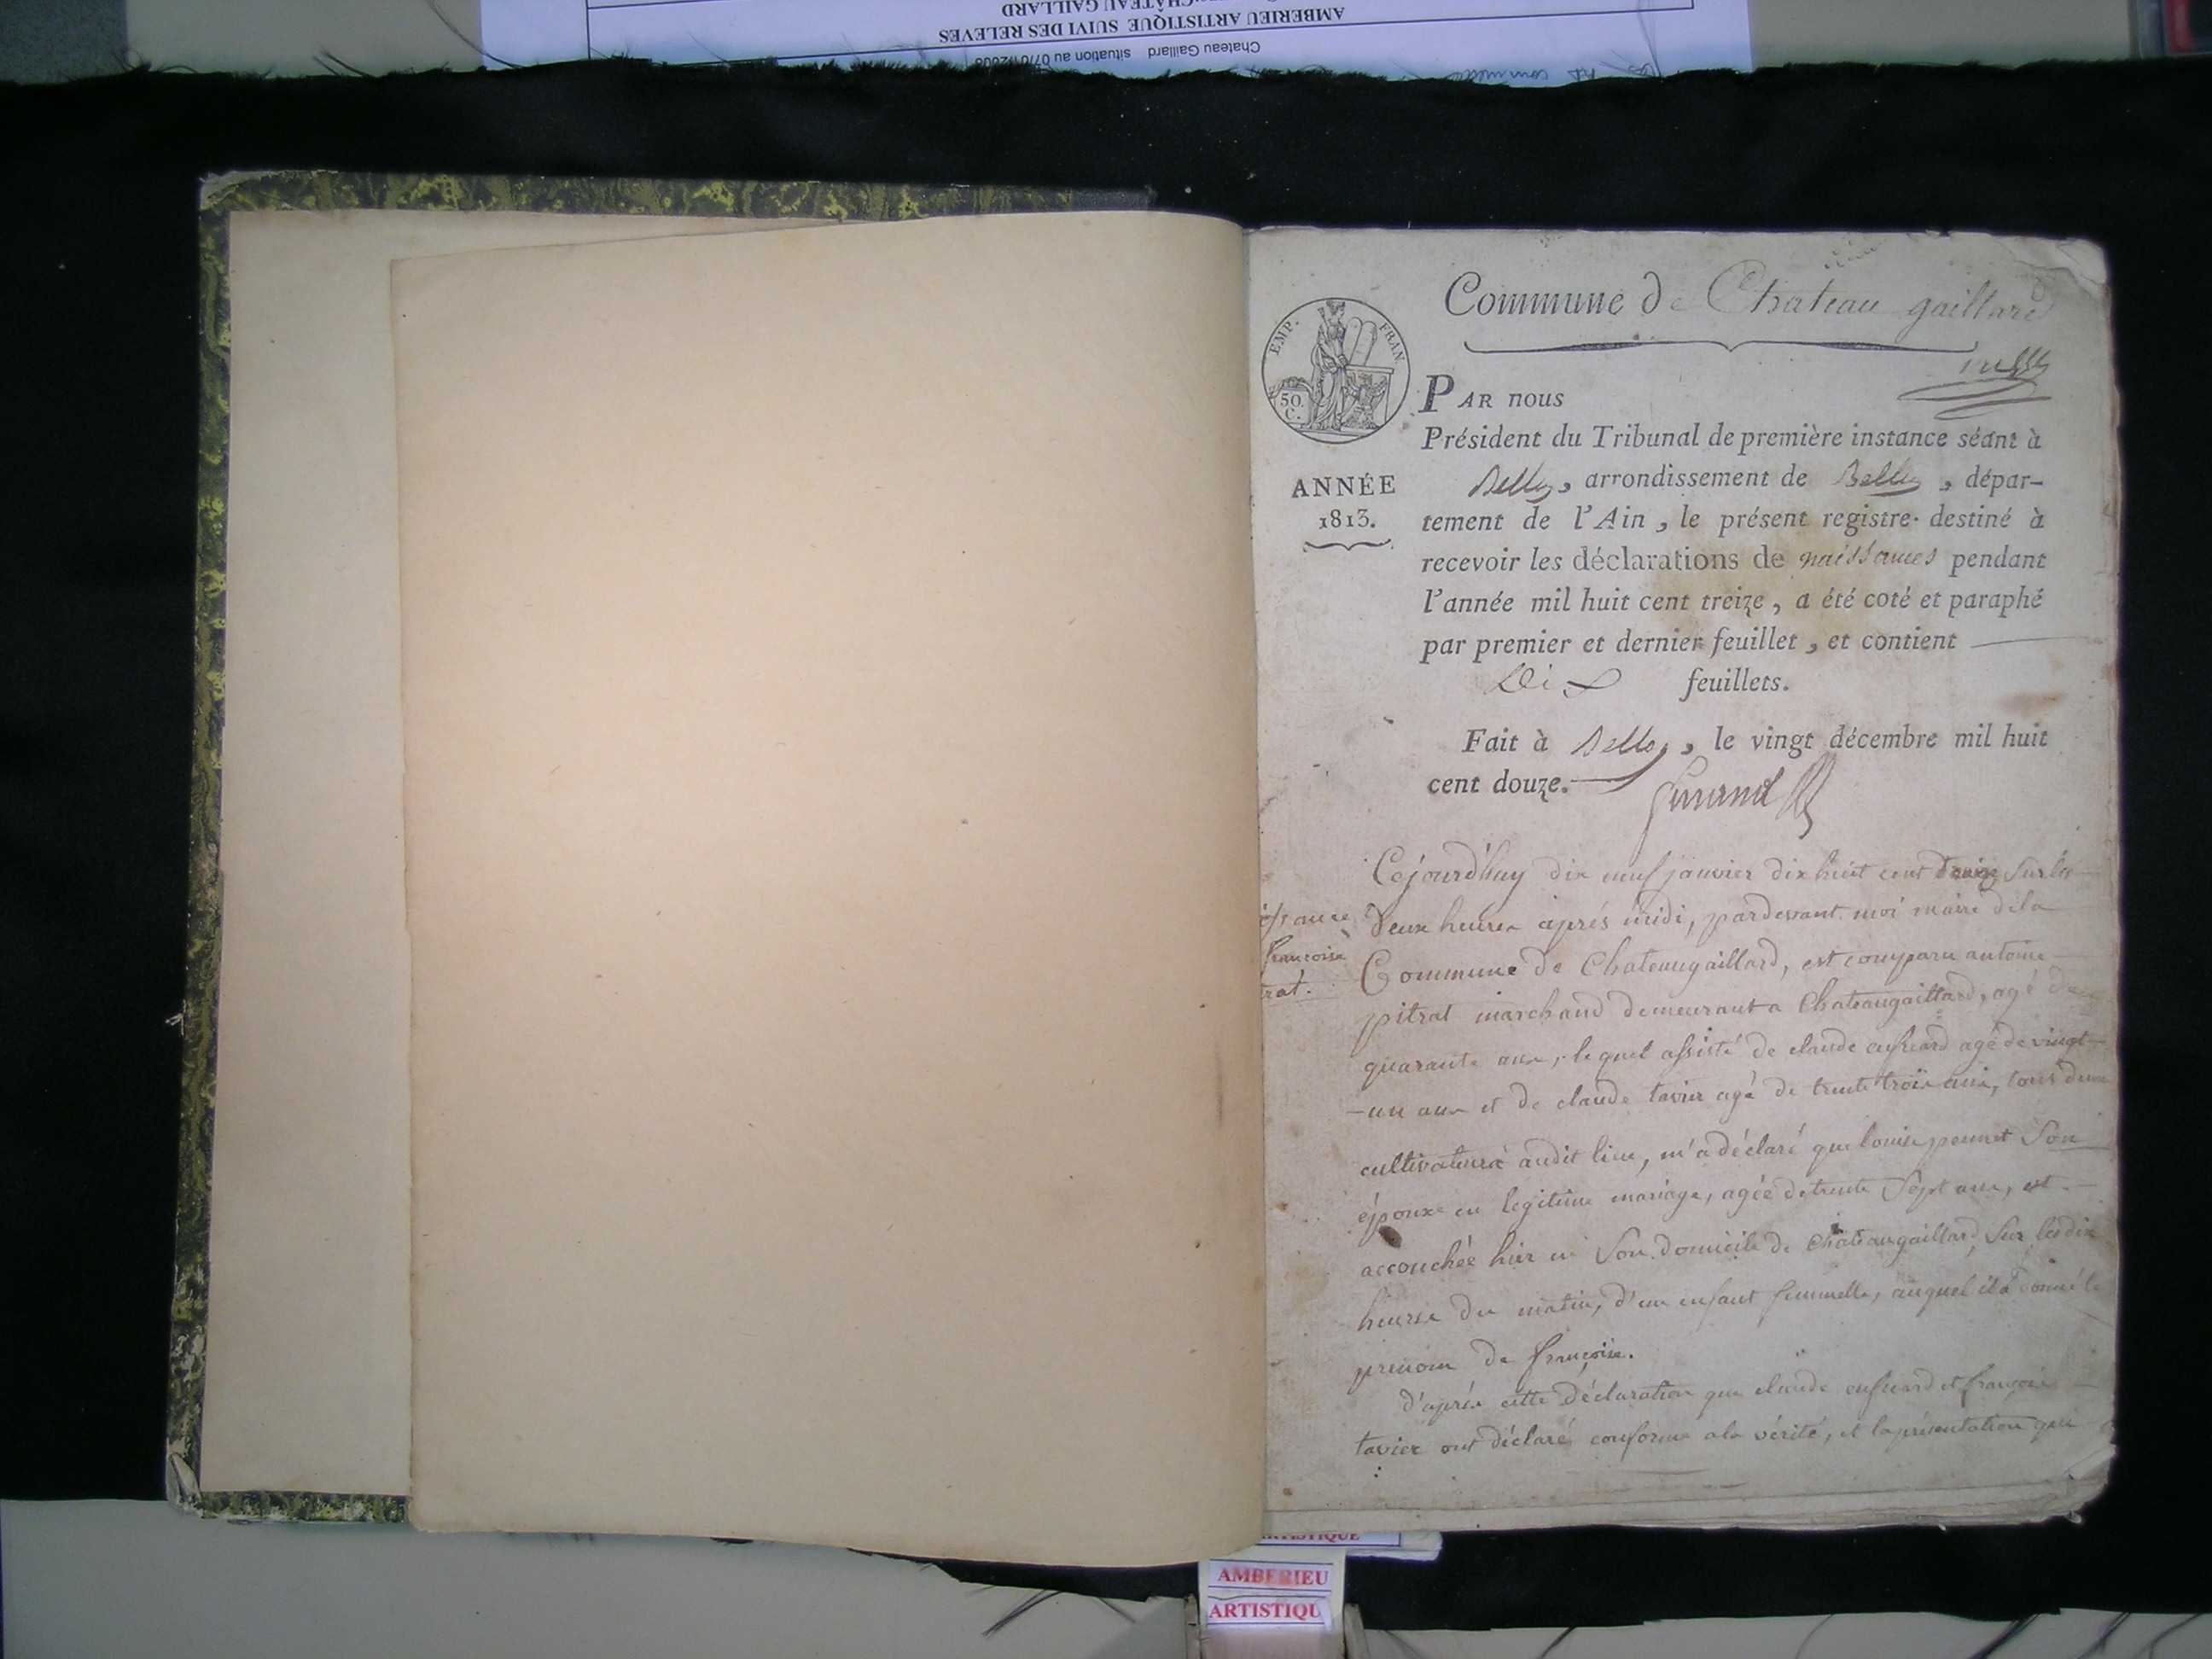 CHÂTEAU GAILLARD
AMBERIEU ARTISTIQUE SUIVI DES RELEVES
Chateau Gaillard situation au
Commune de Chateau gaillard
EMP. FRAN.
50.
C.
PAR nous
Président du Tribunal de première instance séant à
ANNÉE
1813.
Belley, arrondissement de Belley, dépar-
tement de l'Ain, le présent registre destiné à
recevoir les déclarations de naissances pendant
l'année mil huit cent treize, a été coté et paraphé
par premier et dernier feuillet, et contient
Dix feuillets.
Fait à Belley, le vingt décembre mil huit
cent douze.
françoise
trat.
Cejourd'huy dix neuf janvier dix huit cent treize, sur les
deux heures après midi, pardevant moi maire dela
Commune de Chateaugaillard, est comparu antoine
pitrat marchand demeurant a Chateaugaillard, agé de
quarante ans, lequel assisté de claude agé de vingt
-un ans et de claude tavier agé de trente trois ans, tous deux
cultivateurs audit lieu, m'a déclaré que louise son
épouse en legitime mariage, agée de trente sept ans, est
accouchée hier en son domicile de Chateaugaillard, sur les dix
heures du matin, d'un enfant femmelle, auquel il a donné le
prenom de françoise.
D'après cette déclaration que claude et françois
tavier ont déclaré conforme ala vérité, et la présentation qui
AMBERIEU
ARTISTIQU